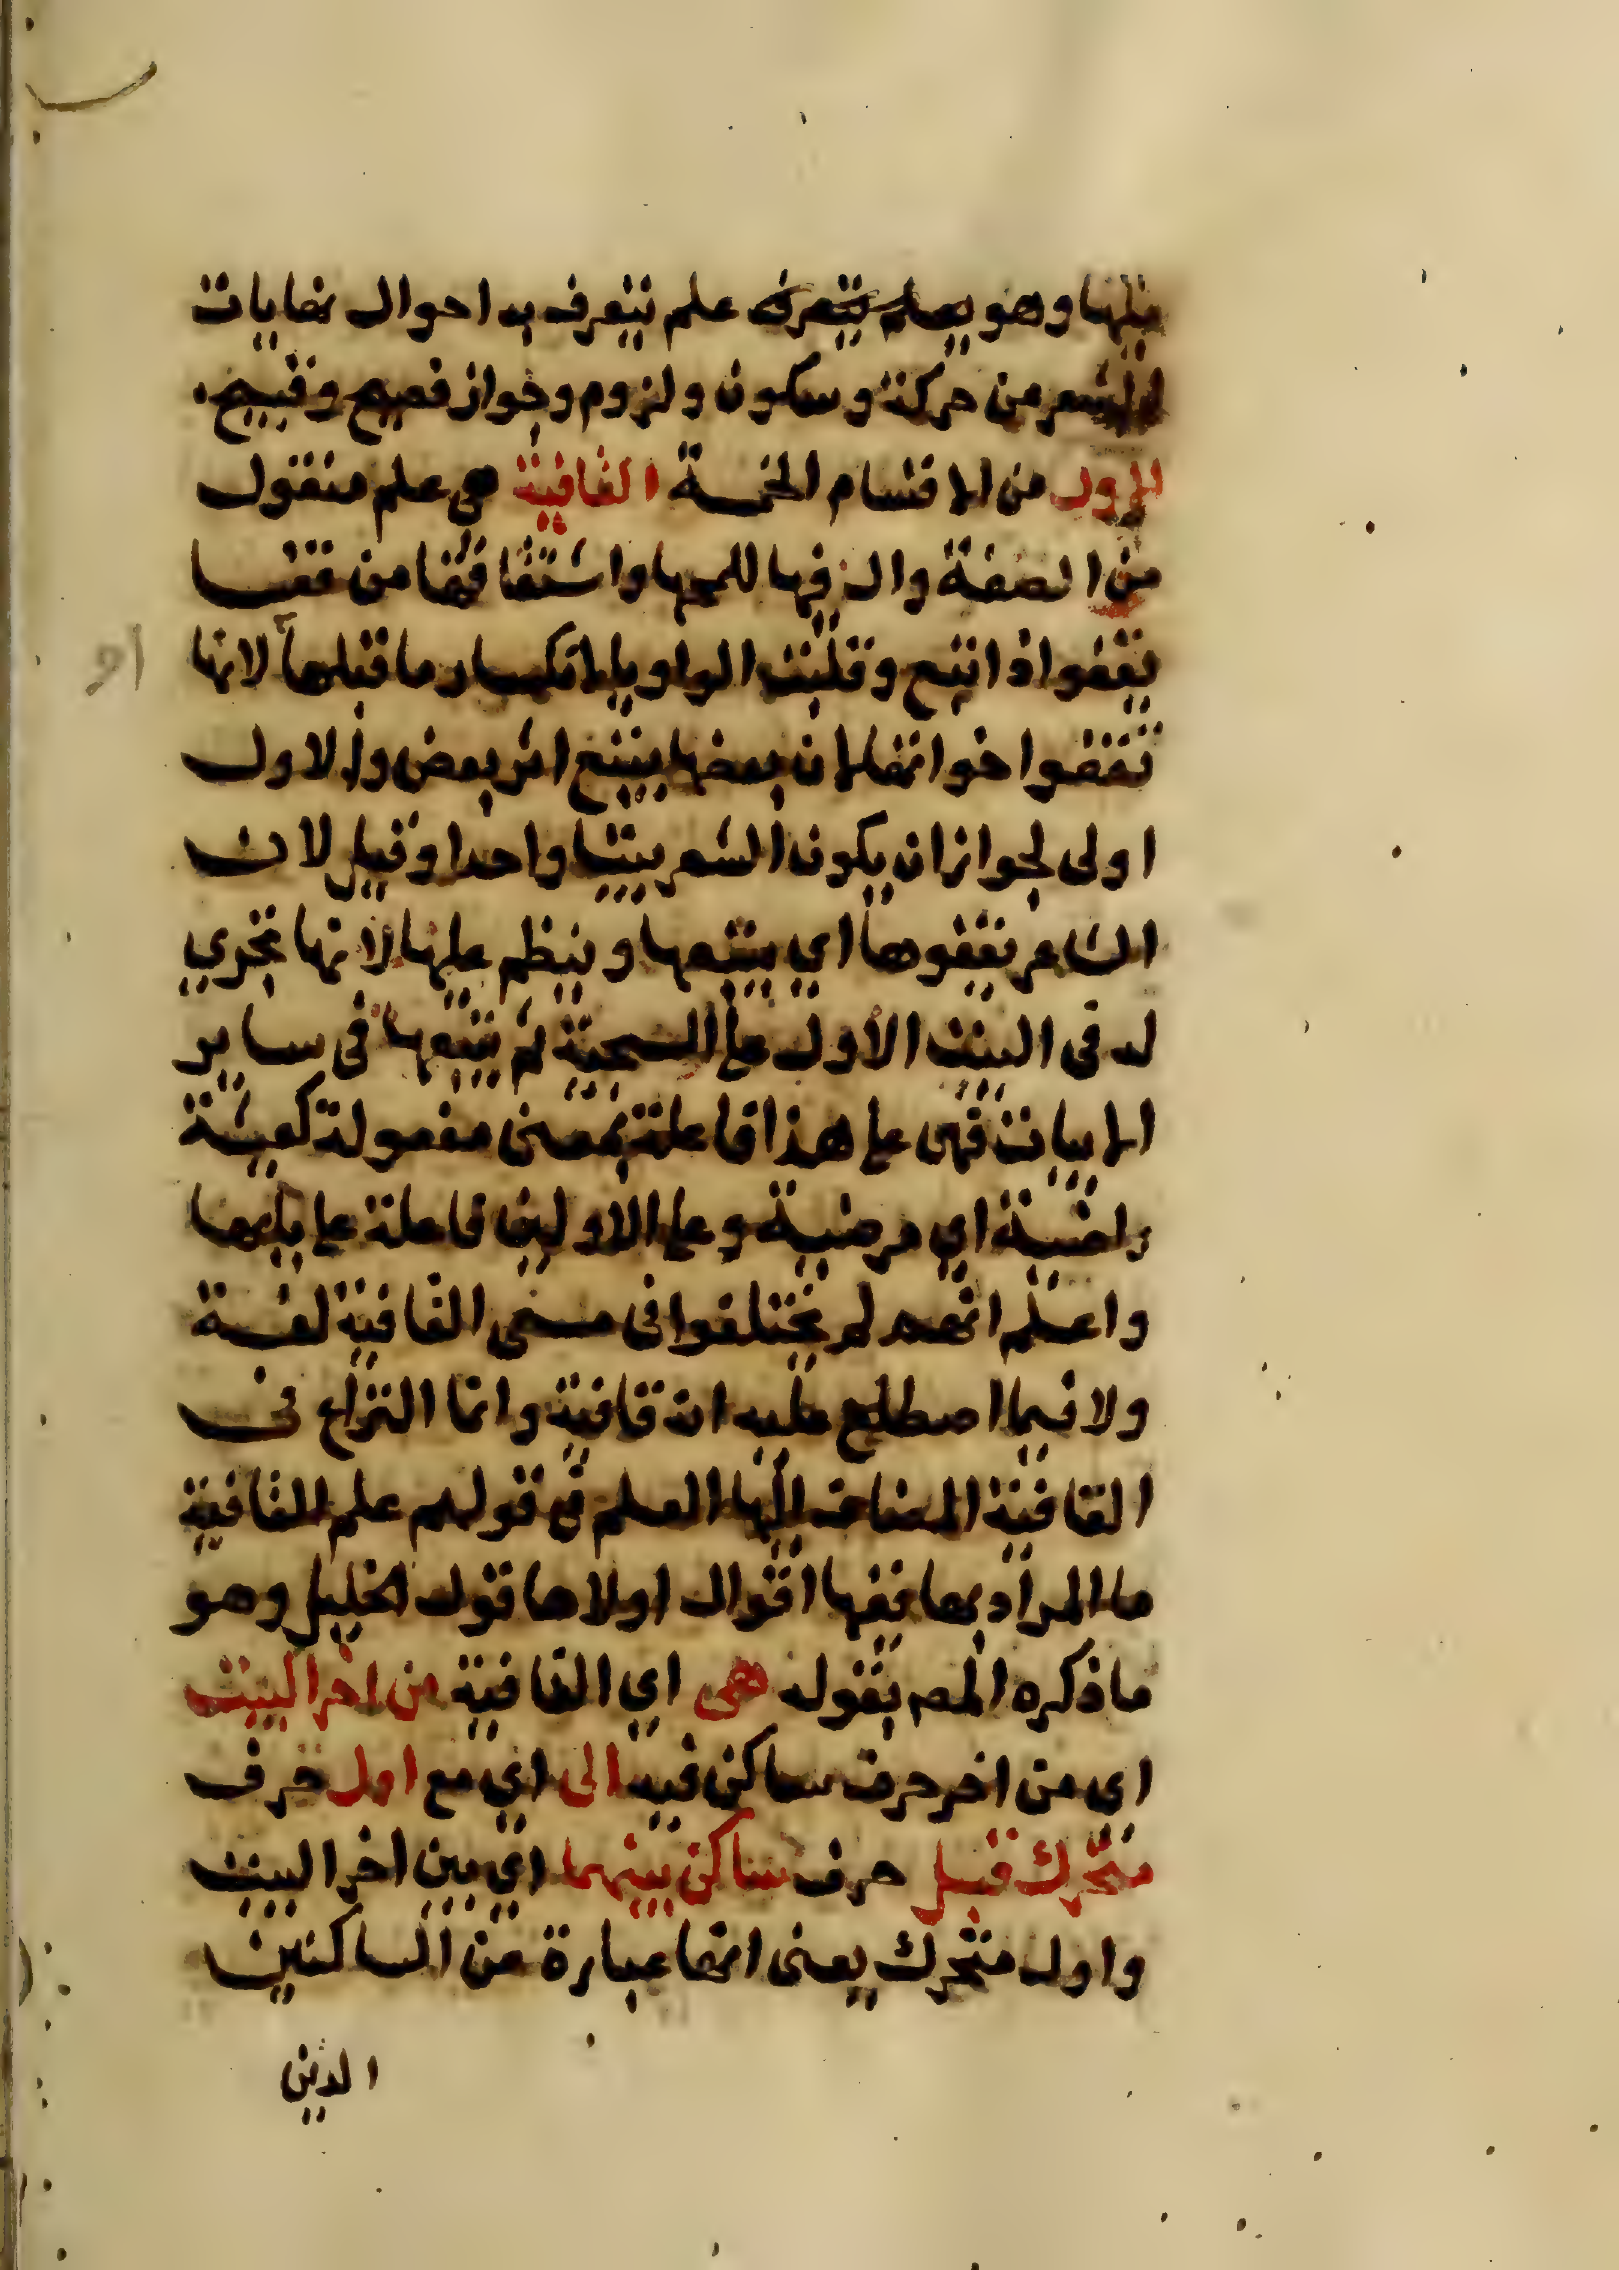 يليها وهو علم يتعرف به احوال نهايات
الشعر من حركة وسكون ولزوم وجواز فصيح وقبيح.
الاول من الاقسام الخمسة القافية هي علم منقول
من الصفة وال فيها للمحها واشتقاقها من قفا
يقفوا اذا تبع وقلبت الواو ياء لانكسار ما قبلها لانها
تقفوا خواتها لان بعضها يتبع اثر بعض والاول
اولى لجواز ان يكون الشعر بيتا واحدا وقيل لان
الشاعر يقفوها اي يتبعها وينظم عليها لانها تجري
له في البيت الاول على السجية ثم يتبعها في ساير
الابيات فهي على هذا فاعلة بمعنى مفعولة كعيشة
راضية اي مرضية وعلى الاولين فاعلة على بابها
واعلم انهم لم يختلفوا في مسمى القافية لغة
ولا فيما اصطلح عليه انه قافية وانما النزاع في
القافية المضاف اليها العلم في قولهم علم القافية
ما المراد بها ففيها اقوال اولاها قول الخليل وهو
ما ذكره المص بقوله هي اي القافية من اخر البيت
اي من اخر حرف ساكن فيه الى اي مع اول حرف
متحرك قبل حرف ساكن بينهما اي بين اخر البيت
واول متحرك يعني انها عبارة عن الساكنين
الذين